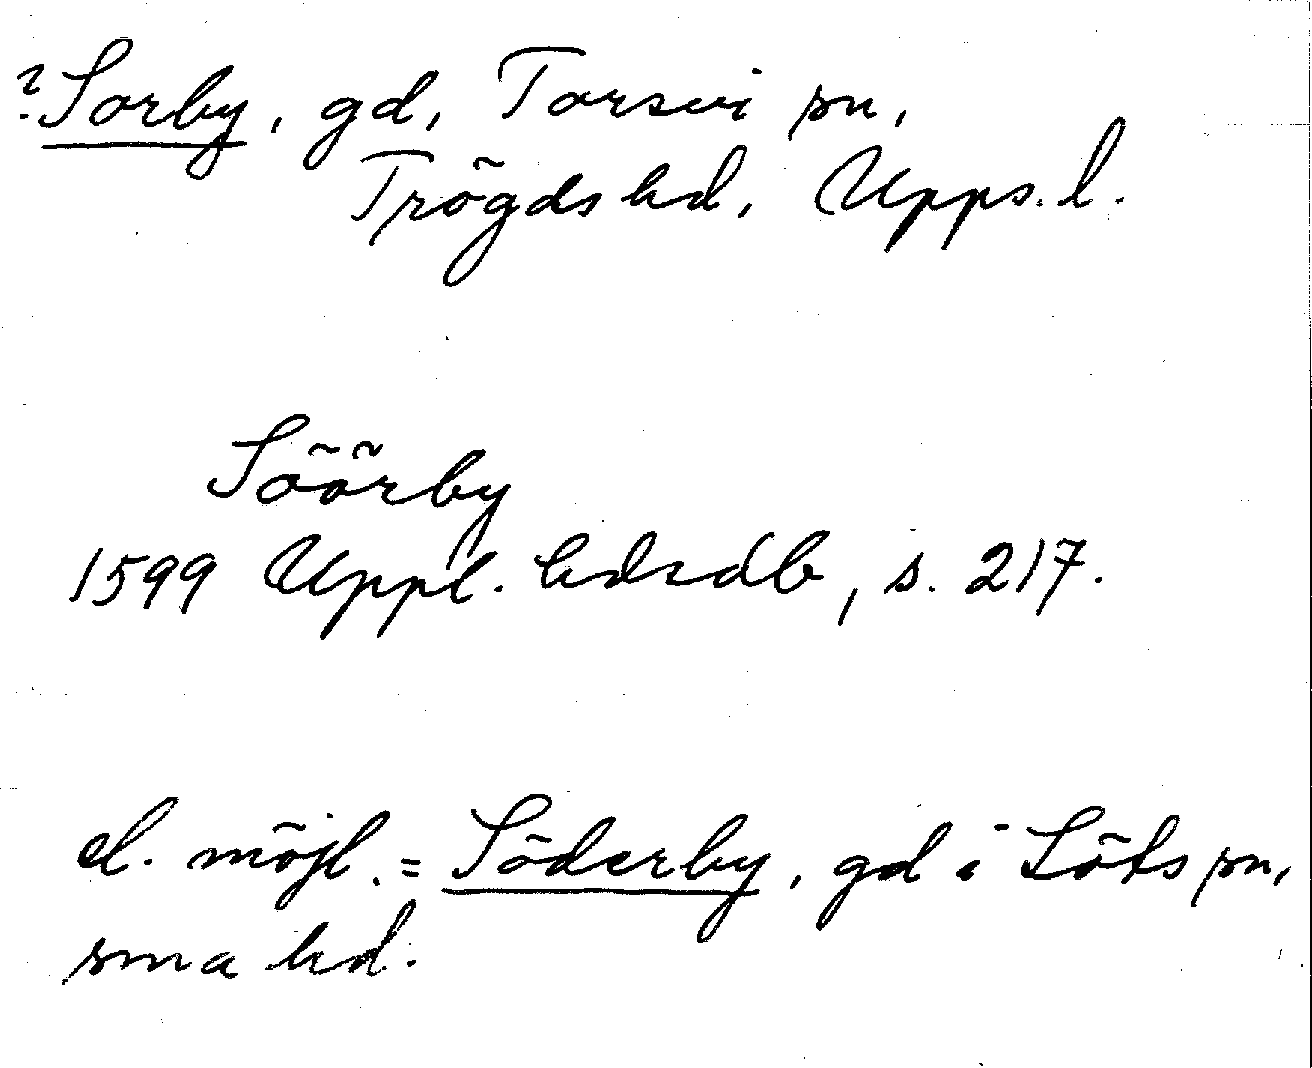 ? Sorby, gd, Torsvi sn,
Trögds hd, Upps. l.
Söörby
1599 Uppl. hdrdb, s. 217.
el. möjl. = Söderby, gd i Löts sn,
sma hd.